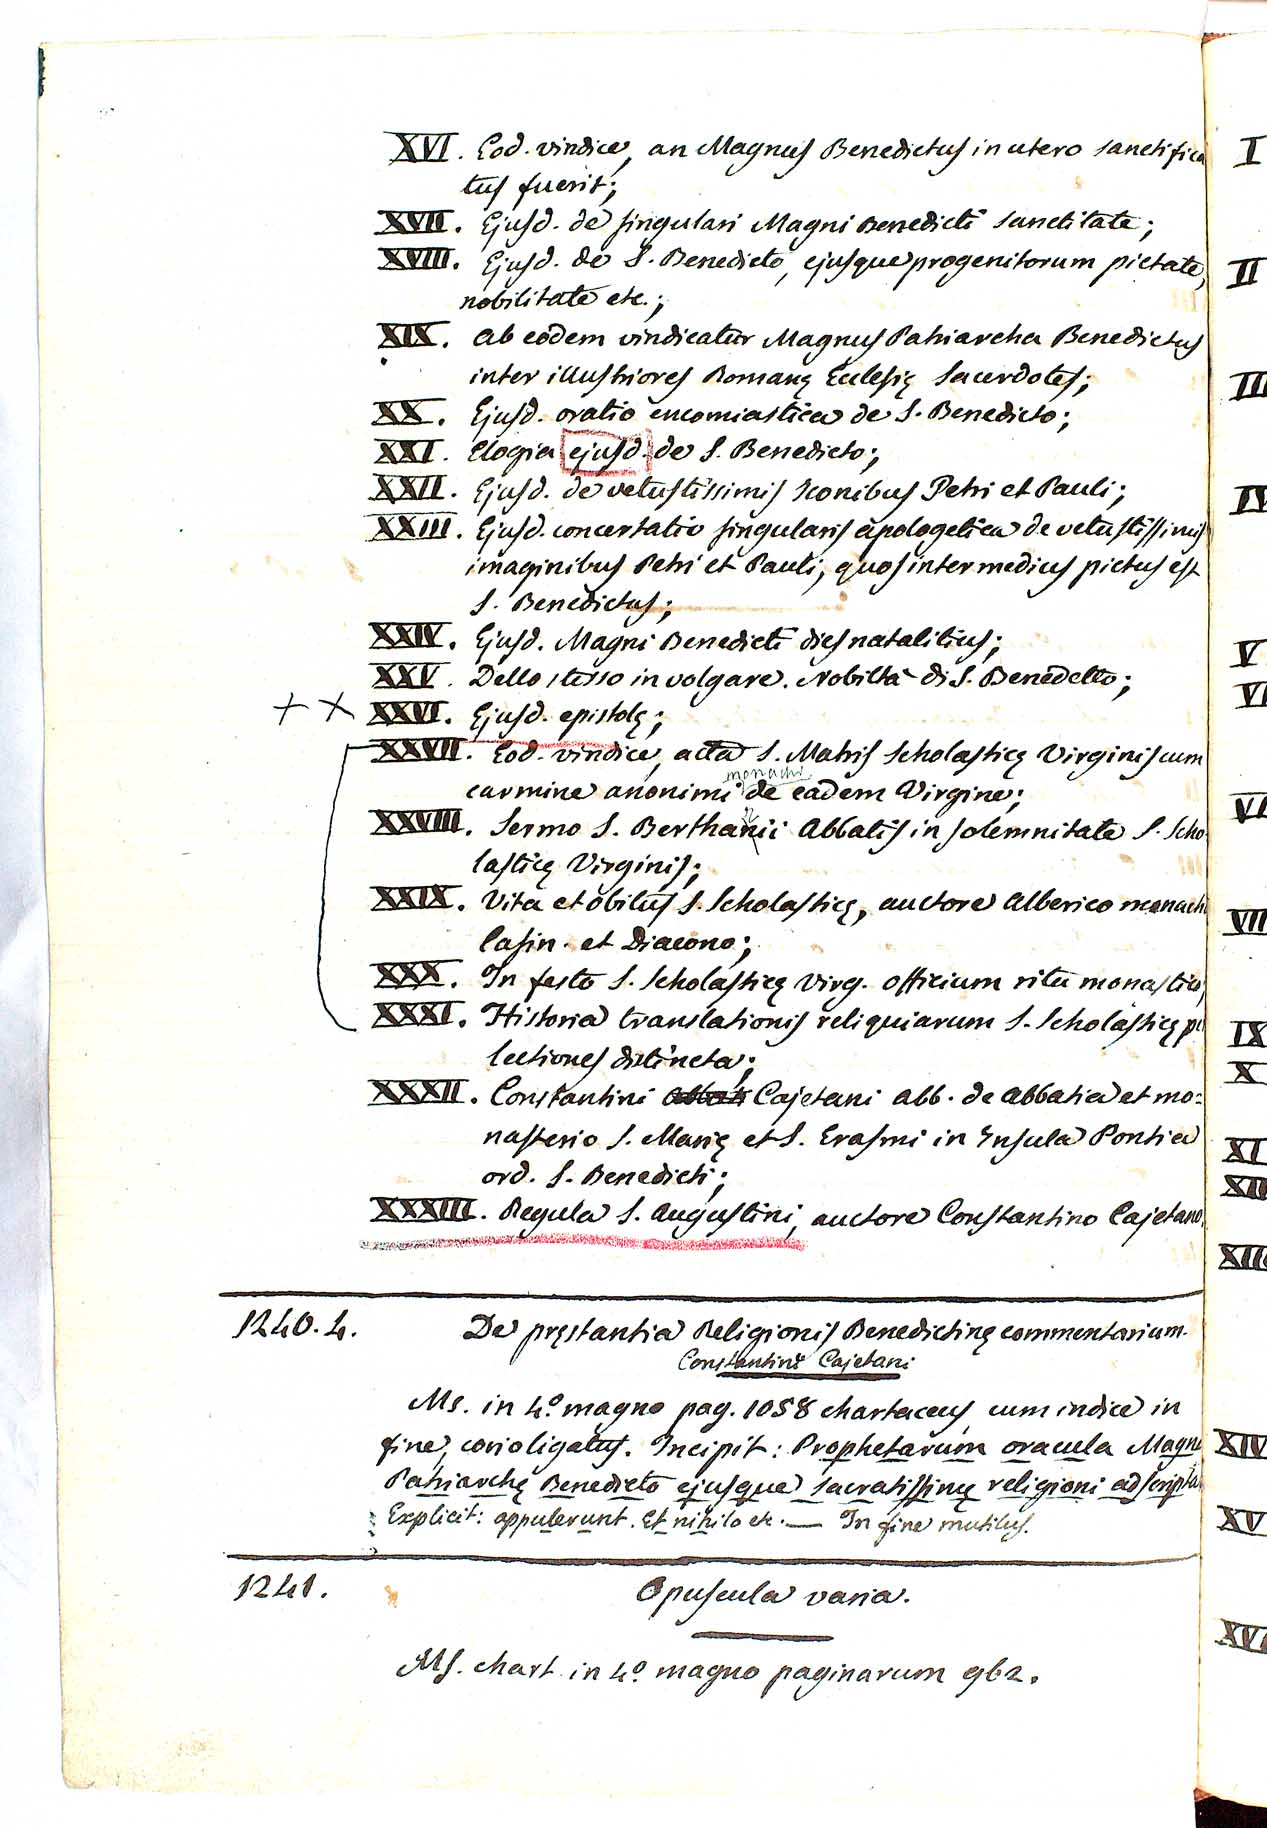 XVI. Eod. vindice, an Magnus Benedictus in utero sanctifica
tus fuerit;
XVII. Ejusd. de singulari Magni Benedicti sanctitate;
XVIII. Ejusd. de S. Benedicto, ejusque progenitorum pietate,
nobilitate etc.;
XIX. Ab eodem vindicatur Magnus Patriarcha Benedictus
inter illustriores Romanę Ecclesię Sacerdotes;
XX. Ejusd. oratio encomiastica de S. Benedicto;
XXI. Elogia ejusd. de S. Benedicto;
XXII. Ejusd. de vetustissimis Iconibus Petri et Pauli;
XXIII. Ejusd. concertatio singularis apologetica de vetustissimis
imaginibus Petri et Pauli, quos intermedius pictus est
S. Benedictus;
XXIV. Ejusd. Magni Benedicti dies natalitius;
XXV. Dello stesso in volgare. Nobiltà di S. Benedetto;
+ × XXVI. Ejusd. epistolę;
XXVII. Eod. vindice, acta S. Matris Scholasticę Virginis cum
monachi
carmine anonimi de eadem Virgine;
XXVIII. Sermo S. Berthanii Abbatis in solemnitate S. Scho
lasticę Virginis;
XXIX. Vita et obitus S. Scholasticę, auctore Alberico monach
Casin. et Diacono;
XXX. In festo S. Scholasticę Virg. officium ritu monastico;
XXXI. Historia translationis reliquiarum S. Scholasticę p
lectiones distincta;
XXXII. Constantini Cajetani abb. de abbatia et mo=
nasterio S. Marię et S. Erasmi in Insula Pontia
ord. S. Benedicti;
XXXIII. Regula S. Augustini, auctore Constantino Cajetano.
1240.4. De pręstantia Religionis Benedictinę commentarium.
Constantini Cajetani
Ms. in 4.º magno pag. 1058 chartaceus, cum indice in
fine, corio ligatus. Incipit: Prophetarum oracula Magn
Patriarchę Benedicto ejusque sacratissimę religioni adscripta
Explicit: appulerunt. Et nihilo etc. — In fine mutilus.
1241. Opuscula varia.
Ms. chart. in 4.º magno paginarum 962.
I
II
III
IV
V
VI
VI
VII
IX
X
XI
XII
XII
XIV
XV
XV